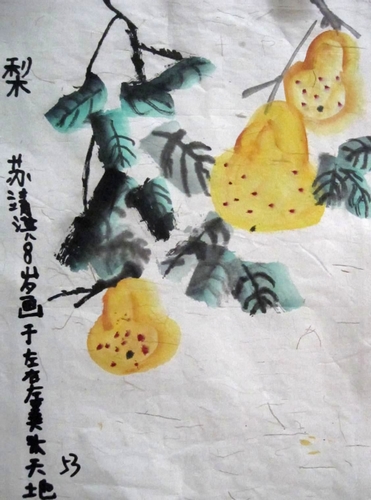 梨
苏清8岁画于左右左美术天地
53